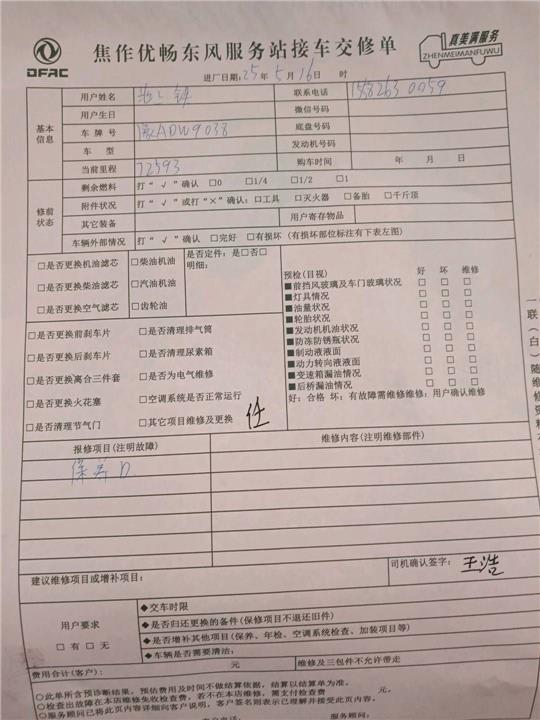 DFAC
焦作优畅东风服务站接车交修单
真美满服务
ZHENMEIMANFUWU
进厂日期：25年5月16日 时
基本信息
用户姓名 联系电话
用户生日 微信号码
车牌号 豫ADW9038 底盘号码
车型 发动机号码
当前里程 72593 购车时间 年 月 日
修前状态
剩余燃料 打“√”确认 □0 □1/4 □1/2 □1
附件状况 打“√”或打“×”确认：□工具 □灭火器 □备胎 □千斤顶
其它装备 用户寄存物品
车辆外部情况 打“√”确认 □完好 □有损坏（有损坏部位标注有下表左图）
□是否更换机油滤芯 □柴油机油 是否定件：是□否□
明细：
□是否更换柴油滤芯 □汽油机油
□是否更换空气滤芯 □齿轮油
预检(目视) 好 坏 维修
■前挡风玻璃及车门玻璃状况 □ □ □
■灯具情况 □ □ □
■油量状况 □ □ □
■轮胎状况 □ □ □
■发动机机油状况 □ □ □
■防冻防锈瓶状况 □ □ □
■制动液液面 □ □ □
■动力转向液液面 □ □ □
■变速箱漏油情况 □ □ □
■后桥漏油情况 □ □ □
好：合格 坏：有故障需维修维修：用户确认维修
□是否更换前刹车片 □是否清理排气筒
□是否更换后刹车片 □是否清理尿素箱
□是否更换离合三件套 □是否为电气维修
□是否更换火花塞 □空调系统是否正常运行
□是否清理节气门 □其它项目维修及更换
报修项目(注明故障) 维修内容(注明维修部件)
保养D
建议维修项目或增补项目：
司机确认签字： 王浩
用户要求
□有 □无
◆交车时限
◆是否归还更换的备件(保修项目不退还旧件)
◆是否增补其他项目(保养、年检、空调系统检查、加装项目等)
◆车辆是否需要清洁：
费用合计(客户)： 元 维修及三包件不允许带走
○此单所含预诊断结果，预估费用及时间不做结算依据，结算以结算单为准。
○检查出故障在本店维修免收检查费，若不在本店维修，需支付检查费 元
○服务顾问已将此页内容详细向客户说明，客户签名则表示已理解并接受此页内容。
一联(白)